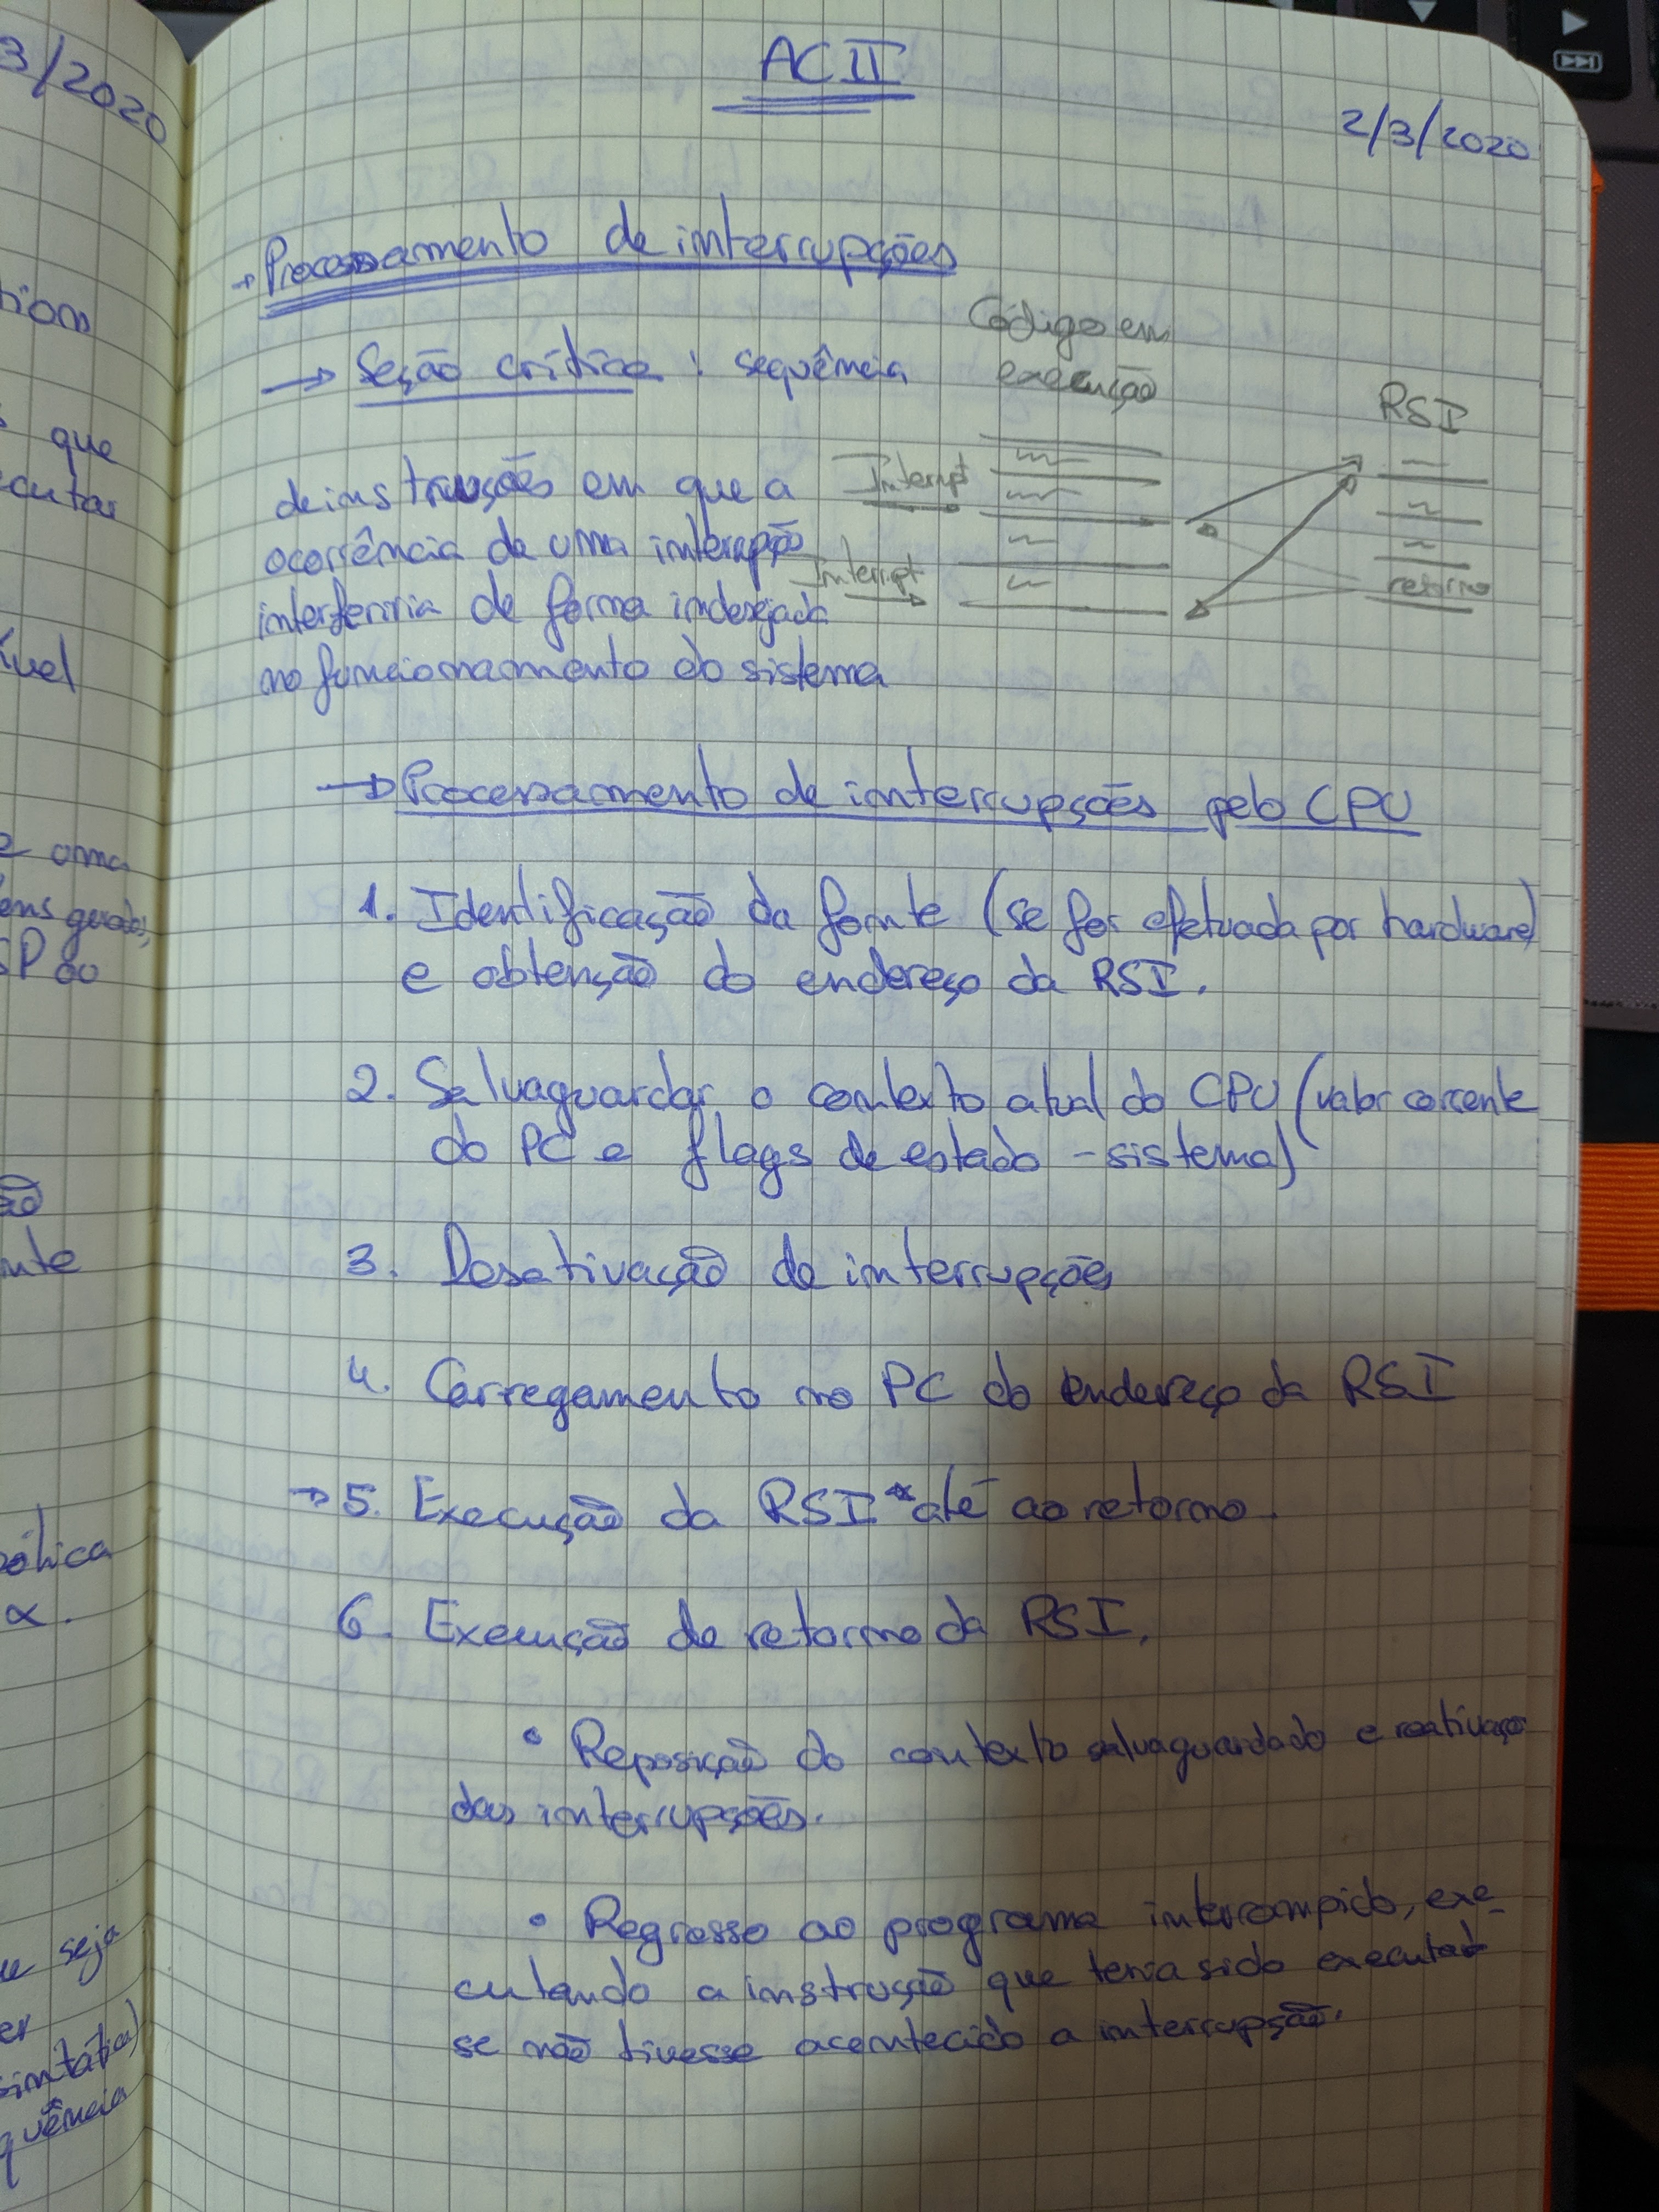 3/2020
iom
que
cutar
ível
e uma
SP do
ão
nte
ólica
α.
ue seja
er
sintática)
quência
ACII
2/3/2020
→ Processamento de interrupções
→ Seção crítica : sequência
de instruções em que a
ocorrência de uma interupção
interferiria de forma indesejada
no funcionamento do sistema
Código em
execução
RSI
Interrupt
Interrupt
retorno
→ Processamento de interrupções pelo CPU
1. Identificação da fonte (se for efetuada por hardware)
e obtenção do endereço da RSI.
2. Salvaguardar o contexto atual do CPU (valor corrente
do PC e flags de estado - sistema)
3. Desativação de interrupções
4. Carregamento no PC do endereço da RSI
→ 5. Execução da RSI * até ao retorno.
6. Execução de retorno da RSI.
• Reposição do contexto salvaguardado e reativação
das interrupções.
• Regresso ao programa interrompido, exe-
cutando a instrução que teria sido executada
se não tivesse acontecido a interrupção.